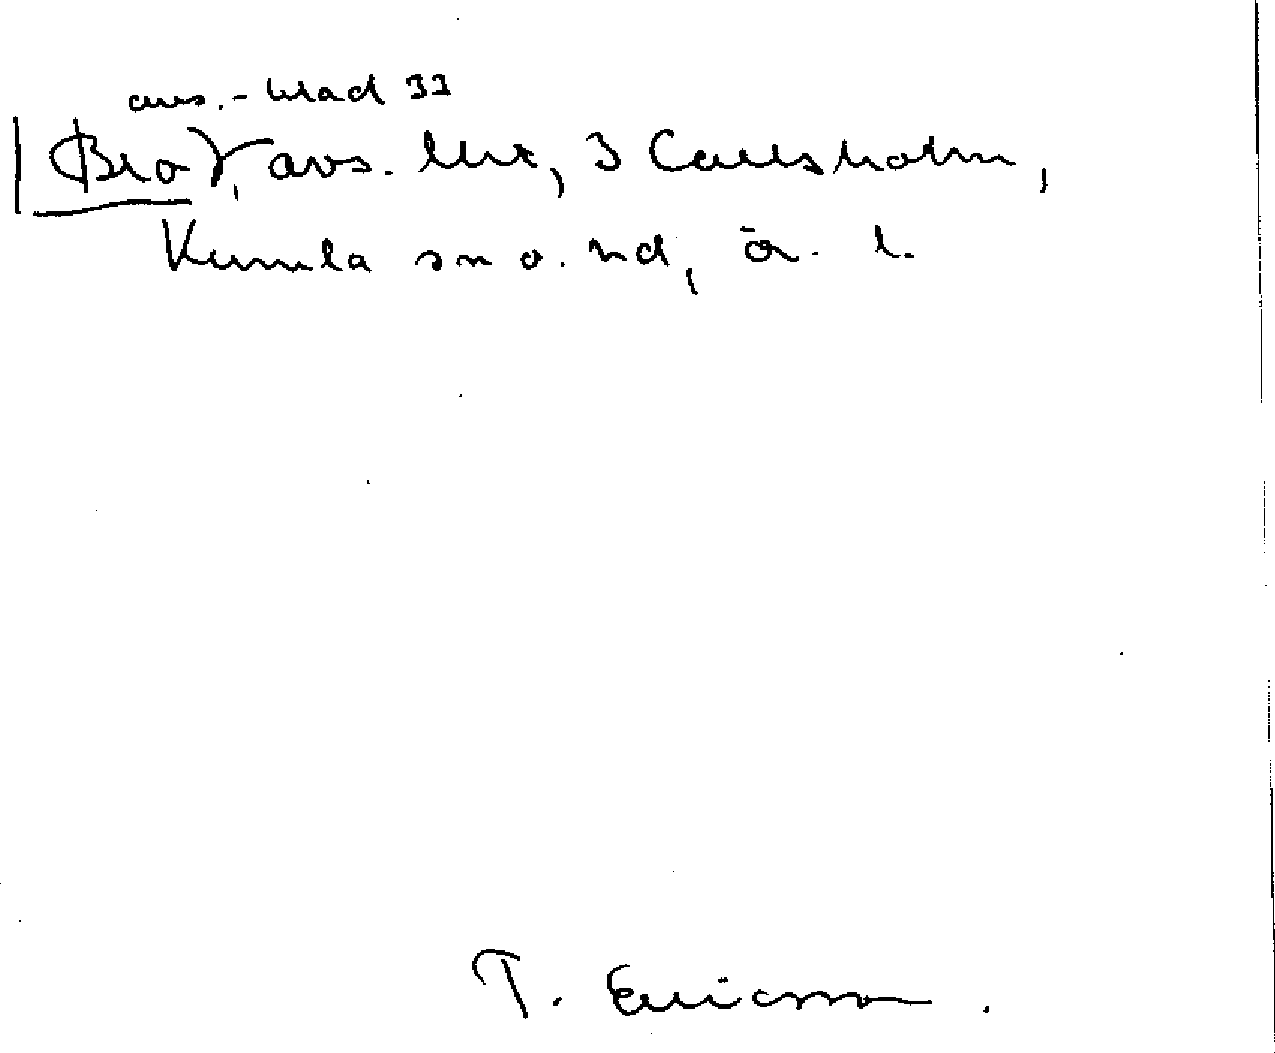 avs.-blad 33
Bro Y, avs. lht, J Carlsholm,
Kumla sn o. hd, ör. l.
T. Ericsson.